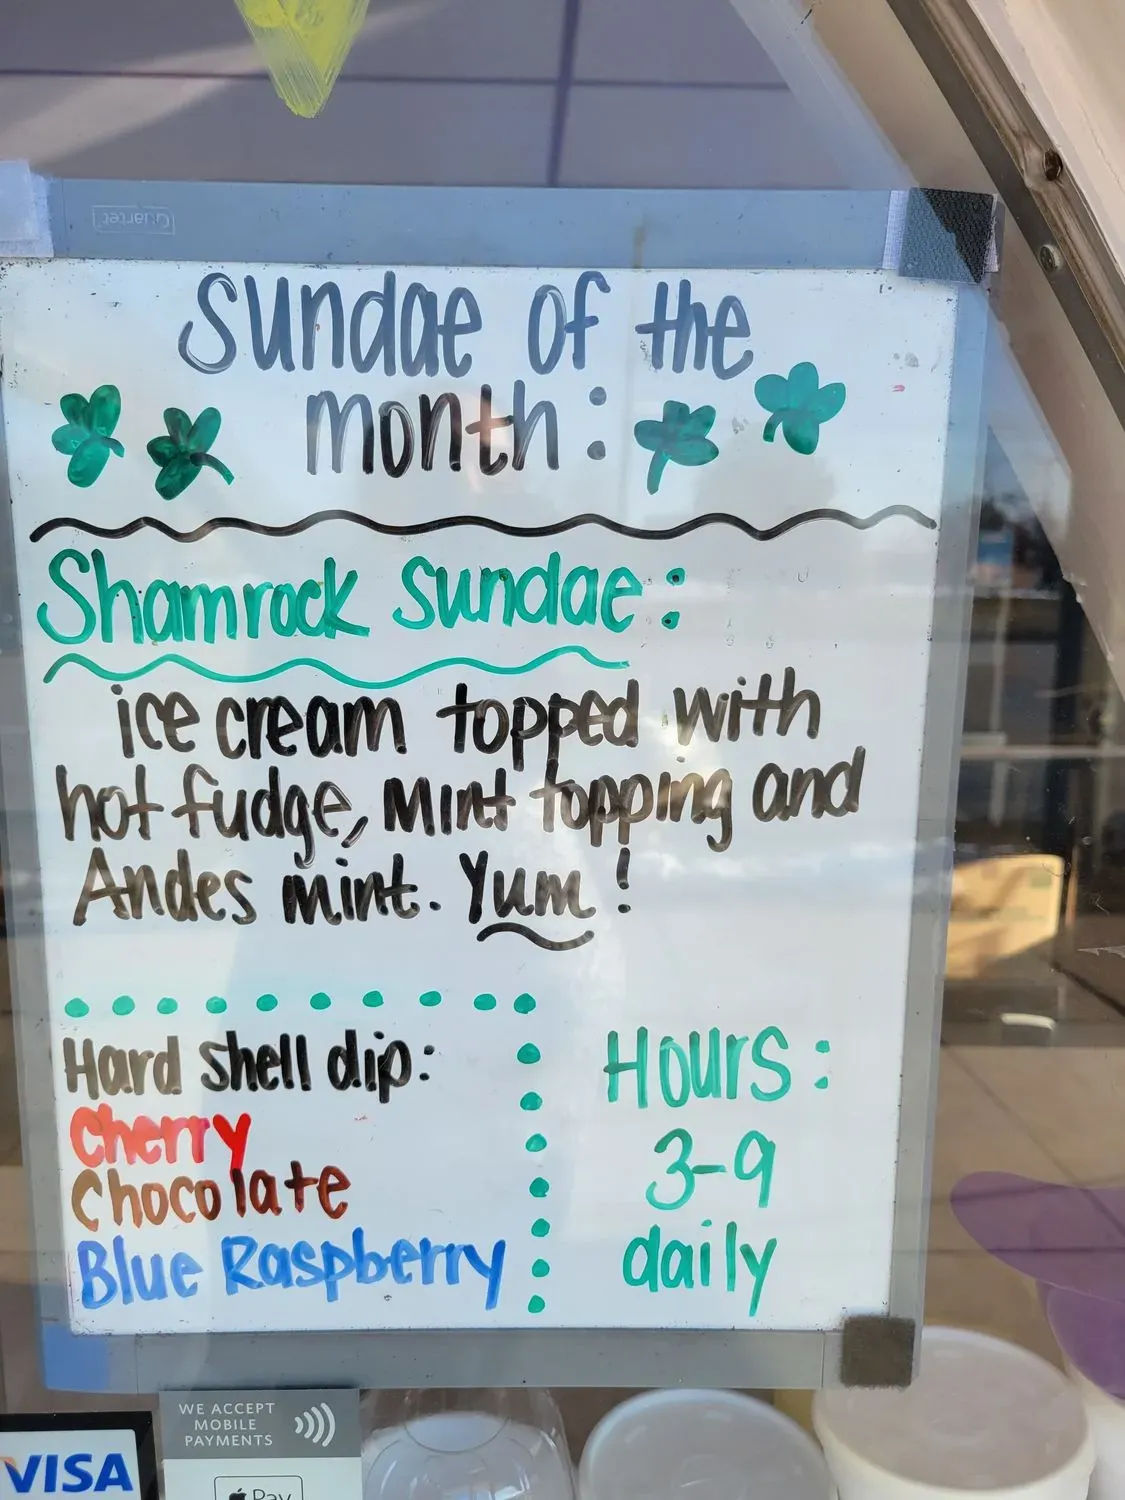 Quartet
Sundae of the
month:
Shamrock Sundae:
ice cream topped with
hot fudge, Mint topping and
Andes mint. Yum!
Hard shell dip:
Cherry
Chocolate
Blue Raspberry
Hours:
3-9
daily
WE ACCEPT
MOBILE
PAYMENTS
VISA
Pay